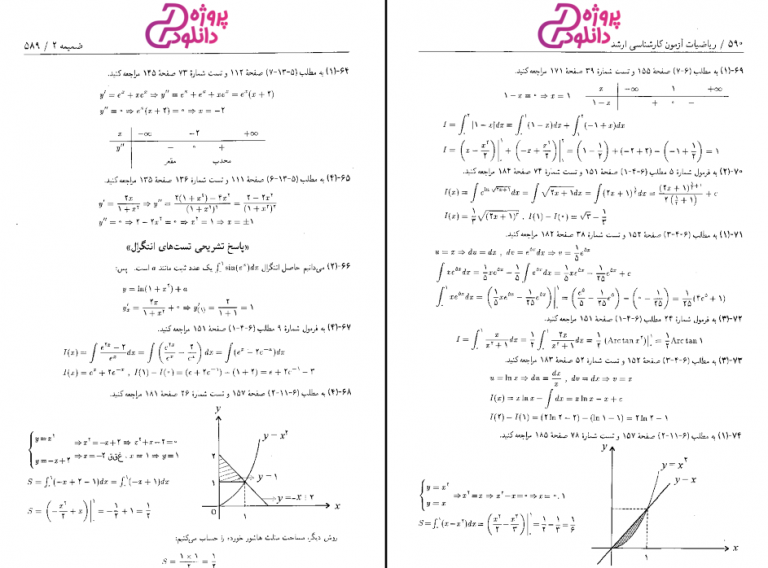 پروژه
دانلود
ضمیمه ۲ / ۵۸۹
۶۴-(۱) به مطلب (۵-۱۳-۷) صفحهٔ ۱۱۲ و تست شمارهٔ ۷۳ صفحهٔ ۱۲۵ مراجعه کنید.
y′ = eˣ + xeˣ ⇒ y″ = eˣ + eˣ + xeˣ = eˣ(x + ۲)
y″ = ۰ ⇒ eˣ(x + ۲) = ۰ ⇒ x = −۲
x −∞ −۲ +∞
y″ − ۰ +
مقعر محدب
۶۵-(۴) به مطلب (۵-۱۳-۶) صفحهٔ ۱۱۱ و تست شمارهٔ ۱۳۶ صفحهٔ ۱۳۵ مراجعه کنید.
y′ = ۲x/(۱ + x²) ⇒ y″ = (۲(۱ + x²) − ۴x²)/(۱ + x²)² = (۲ − ۲x²)/(۱ + x²)²
y″ = ۰ ⇒ ۲ − ۲x² = ۰ ⇒ x² = ۱ ⇒ x = ±۱
«پاسخ تشریحی تست‌های انتگرال»
۶۶-(۲) می‌دانیم حاصل انتگرال ∫ sin(e^x)dx یک عدد ثبت مانند a است. پس:
y = ln(۱ + x²) + a
y′ₓ = ۲x/(۱ + x²) + ۰ ⇒ y′₍₁₎ = ۲/(۱ + ۱) = ۱
۶۷-(۴) به فرمول شمارهٔ ۹ مطلب (۶-۴-۱) صفحهٔ ۱۵۱ مراجعه کنید.
I(x) = ∫ (e^۲ˣ − ۲)/eˣ dx = ∫ (e^۲ˣ/eˣ − ۲/eˣ) dx = ∫ (eˣ − ۲e⁻ˣ)dx
I(x) = eˣ + ۲e⁻ˣ , I(۱) − I(۰) = (e + ۲e⁻¹) − (۱ + ۲) = e + ۲e⁻¹ − ۳
۶۸-(۴) به مطلب (۶-۱۱-۲) صفحهٔ ۱۵۷ و تست شمارهٔ ۲۶ صفحهٔ ۱۸۱ مراجعه کنید.
y = x² ⇒ x² = −x + ۲ ⇒ x² + x − ۲ = ۰
y = −x + ۲ ⇒ x = −۲ غ ق ق , x = ۱ ⇒ y = ۱
S = ∫₀¹(−x + ۲ − ۱)dx = ∫₀¹(−x + ۱)dx
S = (−x²/۲ + x)|₀¹ = −۱/۲ + ۱ = ۱/۲
y
y = x²
۲
y = ۱
y = −x + ۲
۰ ۱ x
روش دیگر: مساحت مثلث هاشور خورده را حساب می‌کنیم:
S = (۱ × ۱)/۲
پروژه
دانلود
۵۹۰ / ریاضیات آزمون کارشناسی ارشد
۶۹-(۱) به مطلب (۶-۷) صفحهٔ ۱۵۵ و تست شمارهٔ ۳۹ صفحهٔ ۱۷۱ مراجعه کنید.
۱ − x = ۰ ⇒ x = ۱
x −∞ ۱ +∞
۱ − x + ۰ −
I = ∫₀² |۱ − x|dx = ∫₀¹ (۱ − x)dx + ∫₁² (−۱ + x)dx
I = (x − x²/۲)|₀¹ + (−x + x²/۲)|₁² = (۱ − ۱/۲) + (−۲ + ۲) − (−۱ + ۱/۲) = ۱
۷۰-(۲) به فرمول شمارهٔ ۵ مطلب (۶-۴-۱) صفحهٔ ۱۵۱ و تست شمارهٔ ۷۴ صفحهٔ ۱۸۴ مراجعه کنید.
I(x) = ∫ e^(ln √(۲x+۱)) dx = ∫ √(۲x + ۱) dx = ∫ (۲x + ۱)^(۱/۲) dx = (۲x + ۱)^(۱/۲+۱) / ۲(۱/۲ + ۱) + c
I(x) = ۱/۳ √(۲x + ۱)³ , I(۱) − I(۰) = √۳ − ۱/۳
۷۱-(۱) به مطلب (۶-۴-۳) صفحهٔ ۱۵۲ و تست شمارهٔ ۳۸ صفحهٔ ۱۸۲ مراجعه کنید.
u = x ⇒ du = dx , dv = e^۵ˣdx ⇒ v = ۱/۵ e^۵ˣ
∫ xe^۵ˣdx = ۱/۵ xe^۵ˣ − ۱/۵ ∫ e^۵ˣdx = ۱/۵ xe^۵ˣ − ۱/۲۵ e^۵ˣ + c
∫₀¹ xe^۵ˣdx = (۱/۵ xe^۵ˣ − ۱/۲۵ e^۵ˣ)|₀¹ = (e⁵/۵ − ۱/۲۵ e⁵) − (۰ − ۱/۲۵) = ۱/۲۵ (۴e⁵ + ۱)
۷۲-(۳) به فرمول شمارهٔ ۲۴ مطلب (۶-۴-۱) صفحهٔ ۱۵۱ مراجعه کنید.
I = ∫₀¹ x/(x⁴ + ۱) dx = ۱/۲ ∫₀¹ ۲x/(x⁴ + ۱) dx = ۱/۲ (Arctan x²)|₀¹ = ۱/۲ Arctan ۱
۷۳-(۳) به مطلب (۶-۴-۳) صفحهٔ ۱۵۲ و تست شمارهٔ ۵۲ صفحهٔ ۱۸۳ مراجعه کنید.
u = ln x ⇒ du = dx/x , dv = dx ⇒ v = x
I(x) = x ln x − ∫ dx = x ln x − x + c
I(۲) − I(۱) = (۲ ln ۲ − ۲) − (ln ۱ − ۱) = ۲ ln ۲ − ۱
۷۴-(۱) به مطلب (۶-۱۱-۲) صفحهٔ ۱۵۷ و تست شمارهٔ ۷۸ صفحهٔ ۱۸۵ مراجعه کنید.
y = x²
y = x ⇒ x² = x ⇒ x² − x = ۰ ⇒ x = ۰, ۱
S = ∫₀¹(x − x²)dx = (x²/۲ − x³/۳)|₀¹ = ۱/۲ − ۱/۳ = ۱/۶
y
y = x²
y = x
۱ x